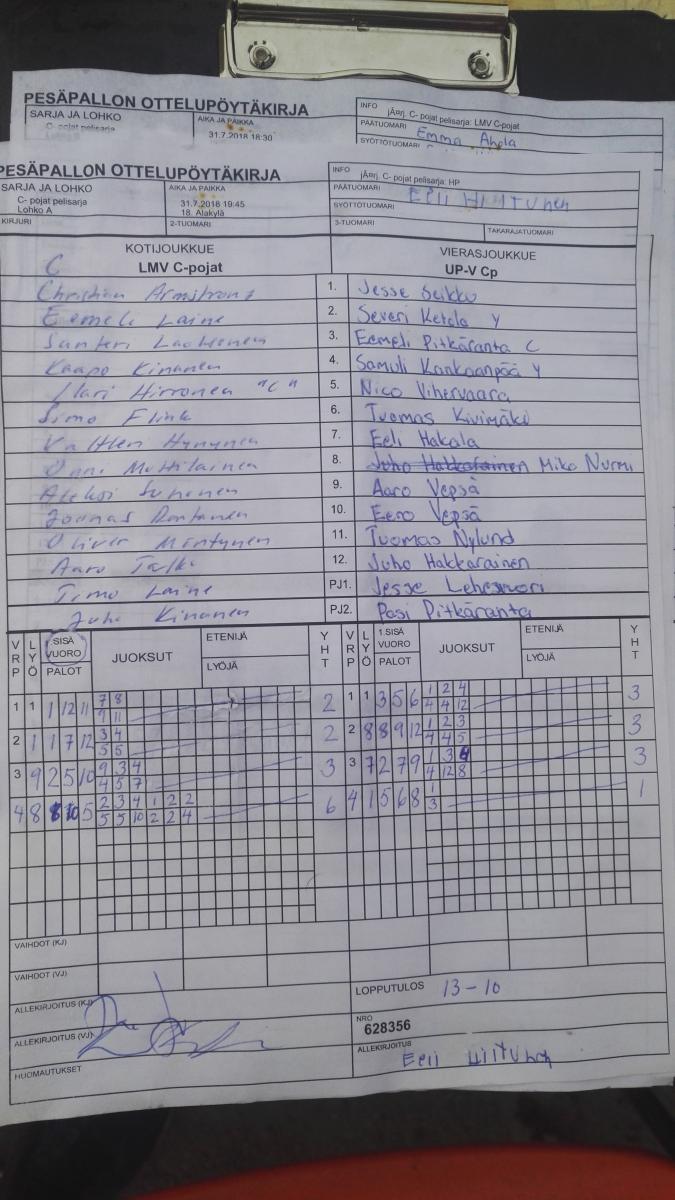 PESÄPALLON OTTELUPÖYTÄKIRJA
INFO
jÄarj. C- pojat pelisarja: LMV C-pojat
SARJA JA LOHKO
AIKA JA PAIKKA
PÄÄTUOMARI Emma Ahola
C- pojat pelisarja
31.7.2018 18:30
SYÖTTÖTUOMARI
PESÄPALLON OTTELUPÖYTÄKIRJA
INFO
jÄarj. C- pojat pelisarja: HP
SARJA JA LOHKO
AIKA JA PAIKKA
PÄÄTUOMARI Eeli
C- pojat pelisarja
31.7.2018 19:45
SYÖTTÖTUOMARI
Lohko A
18. Alakylä
KIRJURI
2-TUOMARI
3-TUOMARI
TAKARAJATUOMARI
KOTIJOUKKUE
VIERASJOUKKUE
C LMV C-pojat
UP-V Cp
Christian Armstrong 1. Jesse Seikku
Eemeli Laine 2. Severi Ketola Y
Santeri Laotonen 3. Eemeli Pitkäranta C
Kaapo Kinanen 4. Samuli Kankaanpää Y
Ilari Hirvonen "C" 5. Nico Vihervaara
Simo Flink 6. Tuomas Kivimäki
Valtteri Hynynen 7. Eeli Hakala
Onni Muttilainen 8. Juho Hakkarainen Miko Nurmi
Aleksi Juhonen 9. Aaro Vepsä
Joonas Rantanen 10. Eero Vepsä
Oliver Mäntynen 11. Tuomas Nylund
Aaro 12. Juho Hakkarainen
Timo Laine PJ1. Jesse
Juha Kinanen PJ2. Pasi Pitkäranta
VRP LYÖ 1.SISÄ VUORO PALOT JUOKSUT ETENIJÄ LYÖJÄ YHT VRP LYÖ 1.SISÄ VUORO PALOT JUOKSUT ETENIJÄ LYÖJÄ YHT
1 1 1 12 11 7 8 2 1 1 3 5 6 1 2 4 3
9 11 4 4 12
2 1 1 7 12 3 4 2 2 8 8 9 12 1 2 3 3
5 5 4 4 5
3 9 2 5 10 9 3 4 3 3 7 2 7 9 1 3 4 3
4 5 7 4 12 8
4 8 8 10 5 2 3 4 1 2 2 6 4 1 5 6 8 1 1
5 5 10 2 2 4 3
VAIHDOT (KJ)
VAIHDOT (VJ)
ALLEKIRJOITUS (KJ)
LOPPUTULOS 13-10
ALLEKIRJOITUS (VJ)
NRO
628356
HUOMAUTUKSET
ALLEKIRJOITUS
Eeli